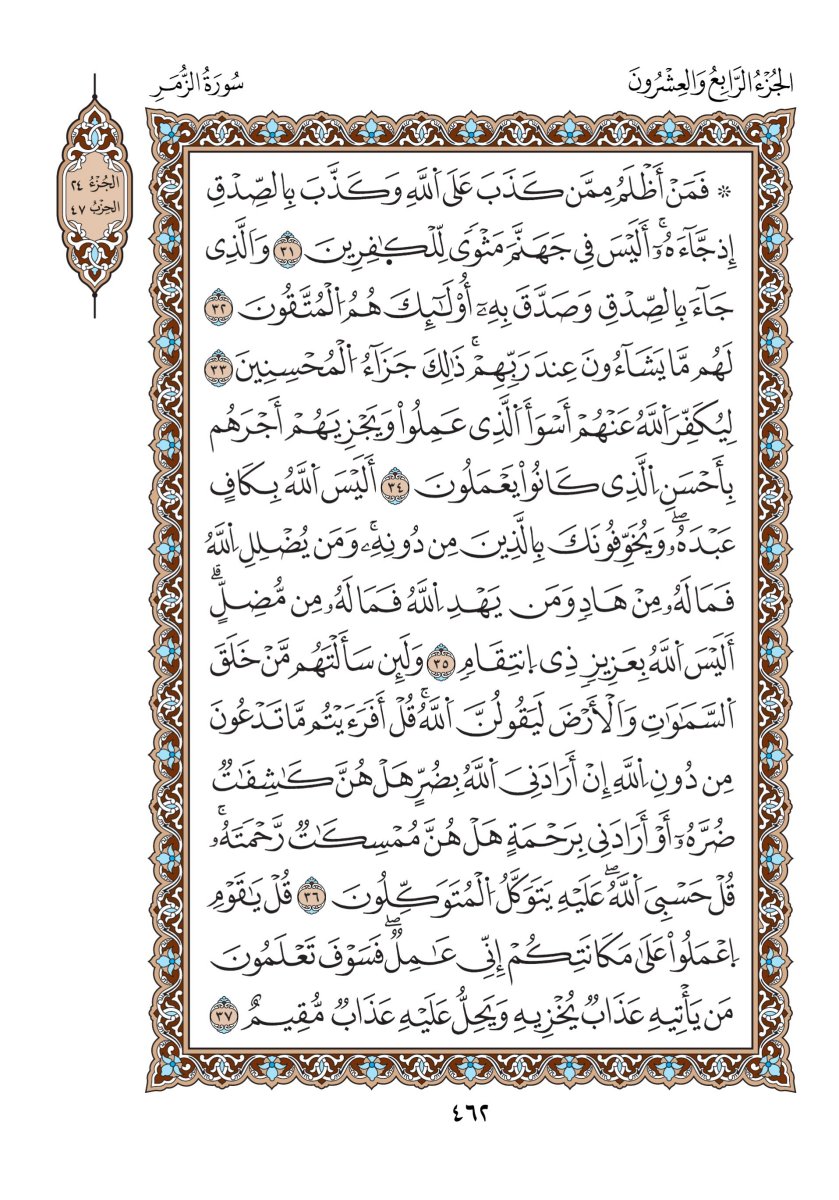 الجُزْءُ الرَّابِعُ وَالعِشْرُونَ
سُورَةُ الزُّمَرِ
الجُزْءُ ٢٤
الحِزْبُ ٤٧
۞ فَمَنْ أَظْلَمُ مِمَّن كَذَبَ عَلَى اَ۬للَّهِ وَكَذَّبَ بِالصِّدْقِ
إِذ جَّآءَهُۥٓۚ أَلَيْسَ فِى جَهَنَّمَ مَثْوٗى لِّلْكٰ۪فِرِينَ ٣١ وَالَّذِى
جَآءَ بِالصِّدْقِ وَصَدَّقَ بِهِۦٓ أُوْلَٰٓئِكَ هُمُ اُ۬لْمُتَّقُونَ ٣٢
لَهُم مَّا يَشَآءُونَ عِندَ رَبِّهِمْۚ ذَٰلِكَ جَزَآءُ اُ۬لْمُحْسِنِينَ ٣٣
لِيُكَفِّرَ اَ۬للَّهُ عَنْهُمْ أَسْوَأَ اَ۬لَّذِى عَمِلُواْ وَيَجْزِيَهُمْ أَجْرَهُم
بِأَحْسَنِ اِ۬لَّذِى كَانُواْ يَعْمَلُونَ ٣٤ أَلَيْسَ اَ۬للَّهُ بِكَافٍ
عَبْدَهُۥۖ وَيُخَوِّفُونَكَ بِالَّذِينَ مِن دُونِهِۦۚ وَمَن يُضْلِلِ اِ۬للَّهُ
فَمَا لَهُۥ مِنْ هَادٖ وَمَن يَهْدِ اِ۬للَّهُ فَمَا لَهُۥ مِن مُّضِلٍّۗ
أَلَيْسَ اَ۬للَّهُ بِعَزِيزٖ ذِى اِ۪نتِقَامٖ ٣٥ وَلَئِن سَأَلْتَهُم مَّنْ خَلَقَ
اَ۬لسَّمَٰوَٰتِ وَالْأَرْضَ لَيَقُولُنَّ اَ۬للَّهُۚ قُلْ أَفَرَءَيْتُم مَّا تَدْعُونَ
مِن دُونِ اِ۬للَّهِ إِنْ أَرَادَنِىَ اَ۬للَّهُ بِضُرٍّ هَلْ هُنَّ كَٰشِفَٰتٌ
ضُرَّهُۥٓ أَوْ أَرَادَنِى بِرَحْمَةٍ هَلْ هُنَّ مُمْسِكَٰتٌ رَّحْمَتَهُۥۚ
قُلْ حَسْبِىَ اَ۬للَّهُۖ عَلَيْهِ يَتَوَكَّلُ اُ۬لْمُتَوَكِّلُونَ ٣٦ قُلْ يَٰقَوْمِ
اِ۪عْمَلُواْ عَلَىٰ مَكَانَتِكُمْ إِنِّى عَٰمِلٌۖ فَسَوْفَ تَعْلَمُونَ
مَن يَأْتِيهِ عَذَابٌ يُخْزِيهِ وَيَحِلُّ عَلَيْهِ عَذَابٌ مُّقِيمٌ ٣٧
٤٦٢